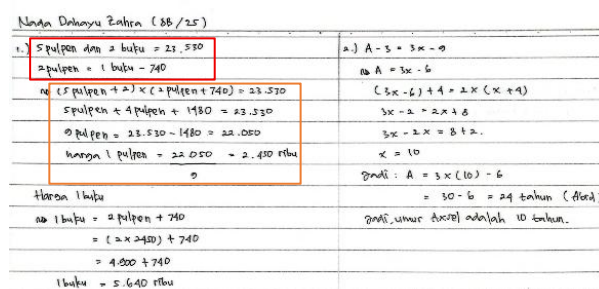 Nada Dahayu Zahra (8B/25)
1.) 5 pulpen dan 2 buku = 23.530
2 pulpen = 1 buku - 740
(5 pulpen + 2) x (2 pulpen + 740) = 23.530
5 pulpen + 4 pulpen + 1480 = 23.530
9 pulpen = 23.530 - 1480 = 22.050
harga 1 pulpen = 22.050 = 2.450 ribu
9
Harga 1 buku
1 buku = 2 pulpen + 740
= (2 x 2450) + 740
= 4.900 + 740
1 buku = 5.640 ribu
2.) A - 3 = 3x - 9
A = 3x - 6
(3x - 6) + 4 = 2x (x + 4)
3x - 2 = 2x + 8
3x - 2x = 8 + 2.
x = 10
Jadi : A = 3 x (10) - 6
= 30 - 6 = 24 tahun
Jadi, umur Axsel adalah 10 tahun.